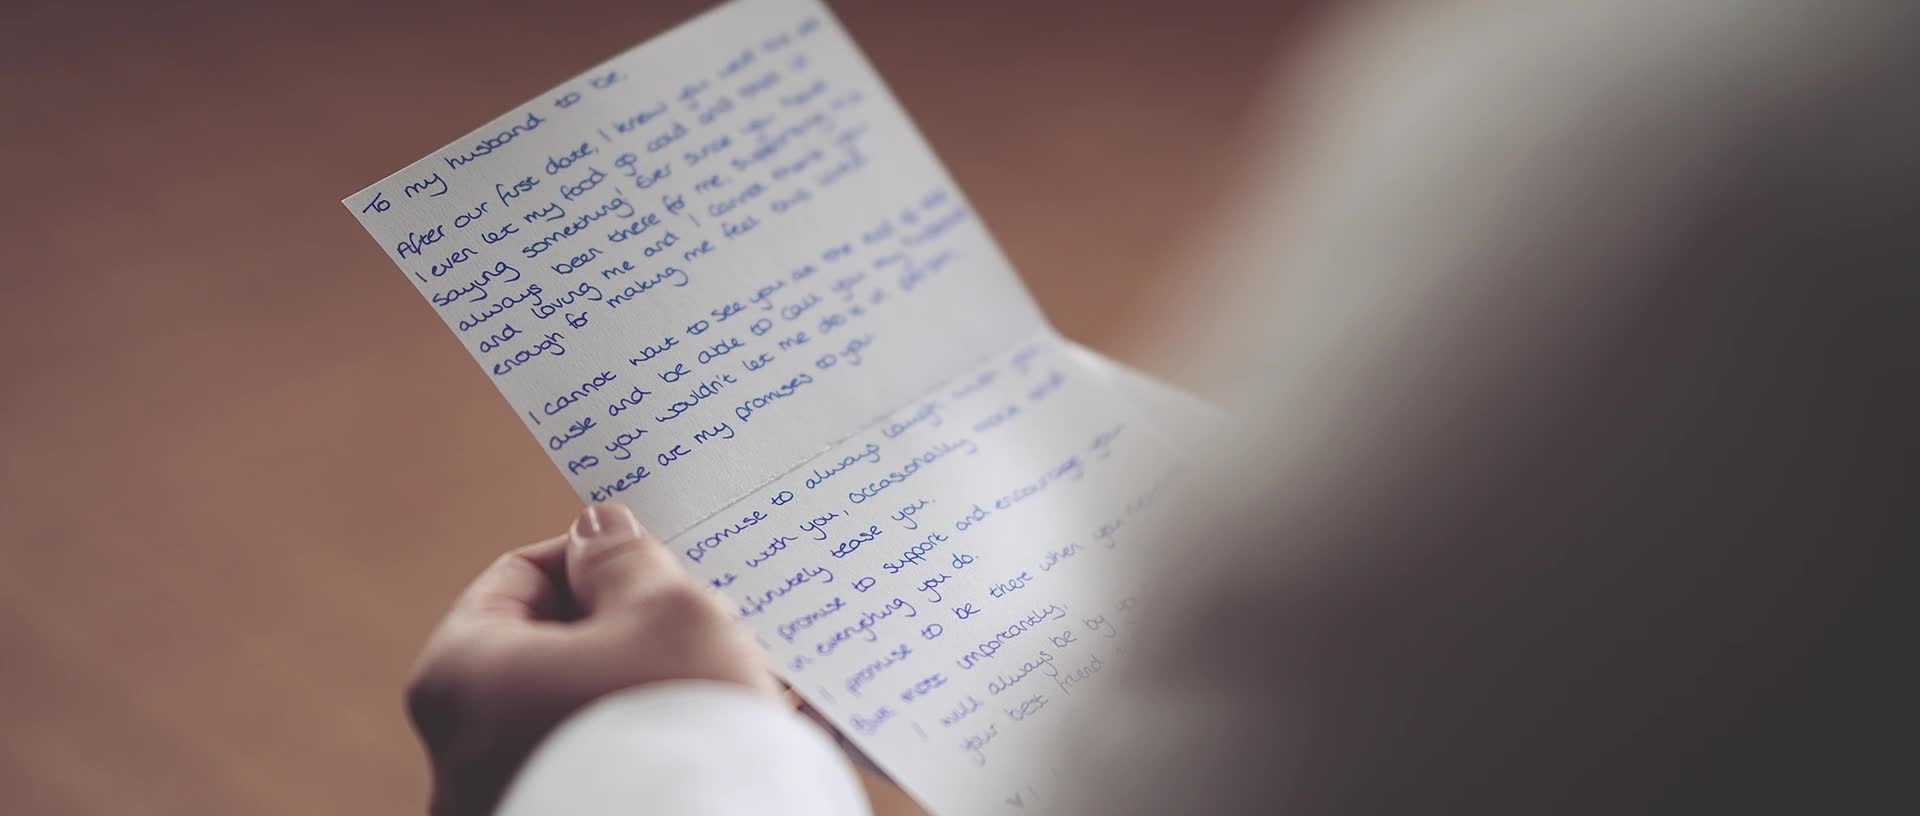 To my husband to be,
After our first date, I knew you were the one
I even let my food go cold and that is
saying something! Ever since you have
always been there for me, supporting me
and loving me and I cannot thank you
enough for making me feel this
I cannot wait to see you at the end of the
aisle and be able to call you my husband
As you wouldn't let me do it in person,
these are my promises to you
promise to always laugh with you
with you, occasionally
definitely tease you.
I promise to support and encourage you
in everything you do.
I promise to be there when you
But most importantly,
I will always be by
your best friend